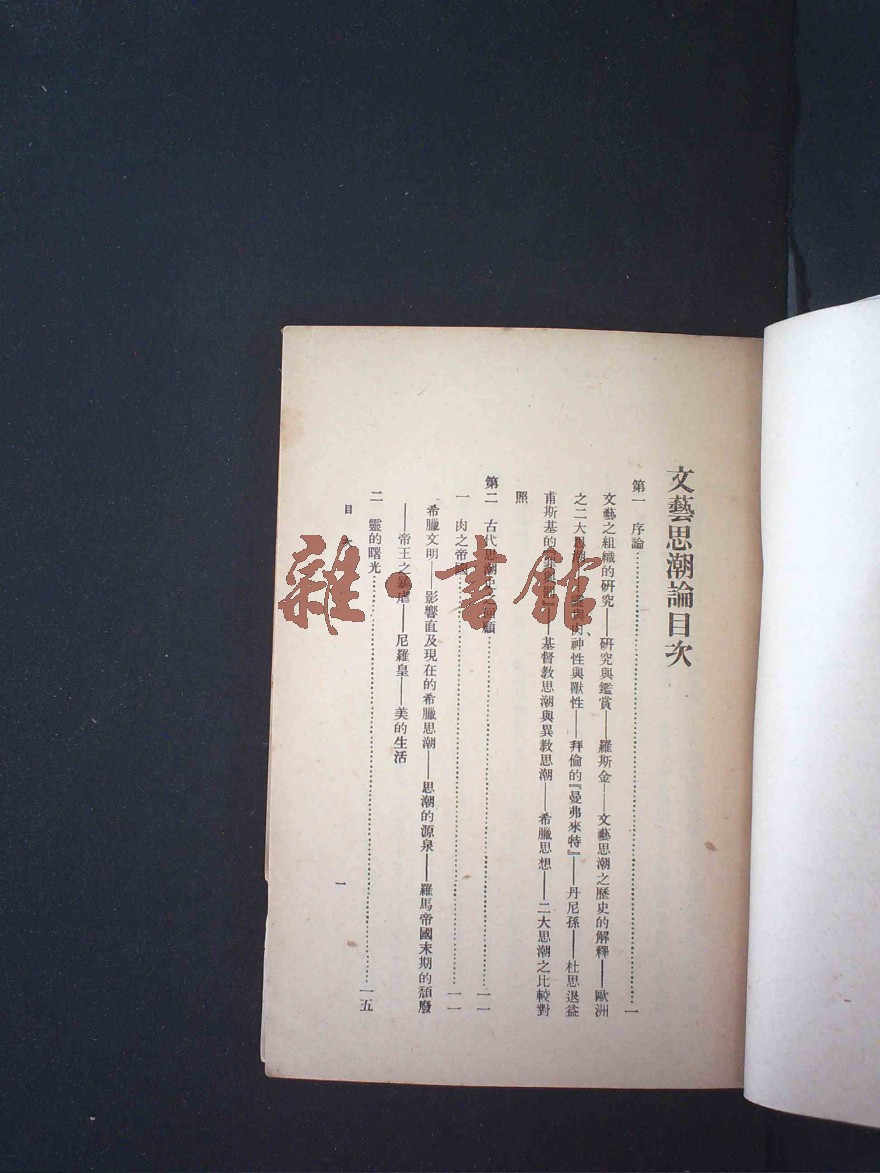 文藝思潮論目次
第一 序論…………一
文藝之組織的研究——研究與鑑賞——羅斯金——文藝思潮之歷史的解釋——歐洲
之二大思潮——靈與肉、神性與獸性——拜倫的『曼弗來特』——丹尼孫——杜思退益
甫斯基的『罪與罰』——基督教思潮與異教思潮——希臘思想——二大思潮之比較對
照
第二 古代思潮史之回顧…………一一
一 肉之帝國…………一一
希臘文明——影響直及現在的希臘思潮——思潮的源泉——羅馬帝國末期的頹廢
——帝王之暴虐——尼羅皇——美的生活
二 靈的曙光…………一五
目次
一
雜·書館